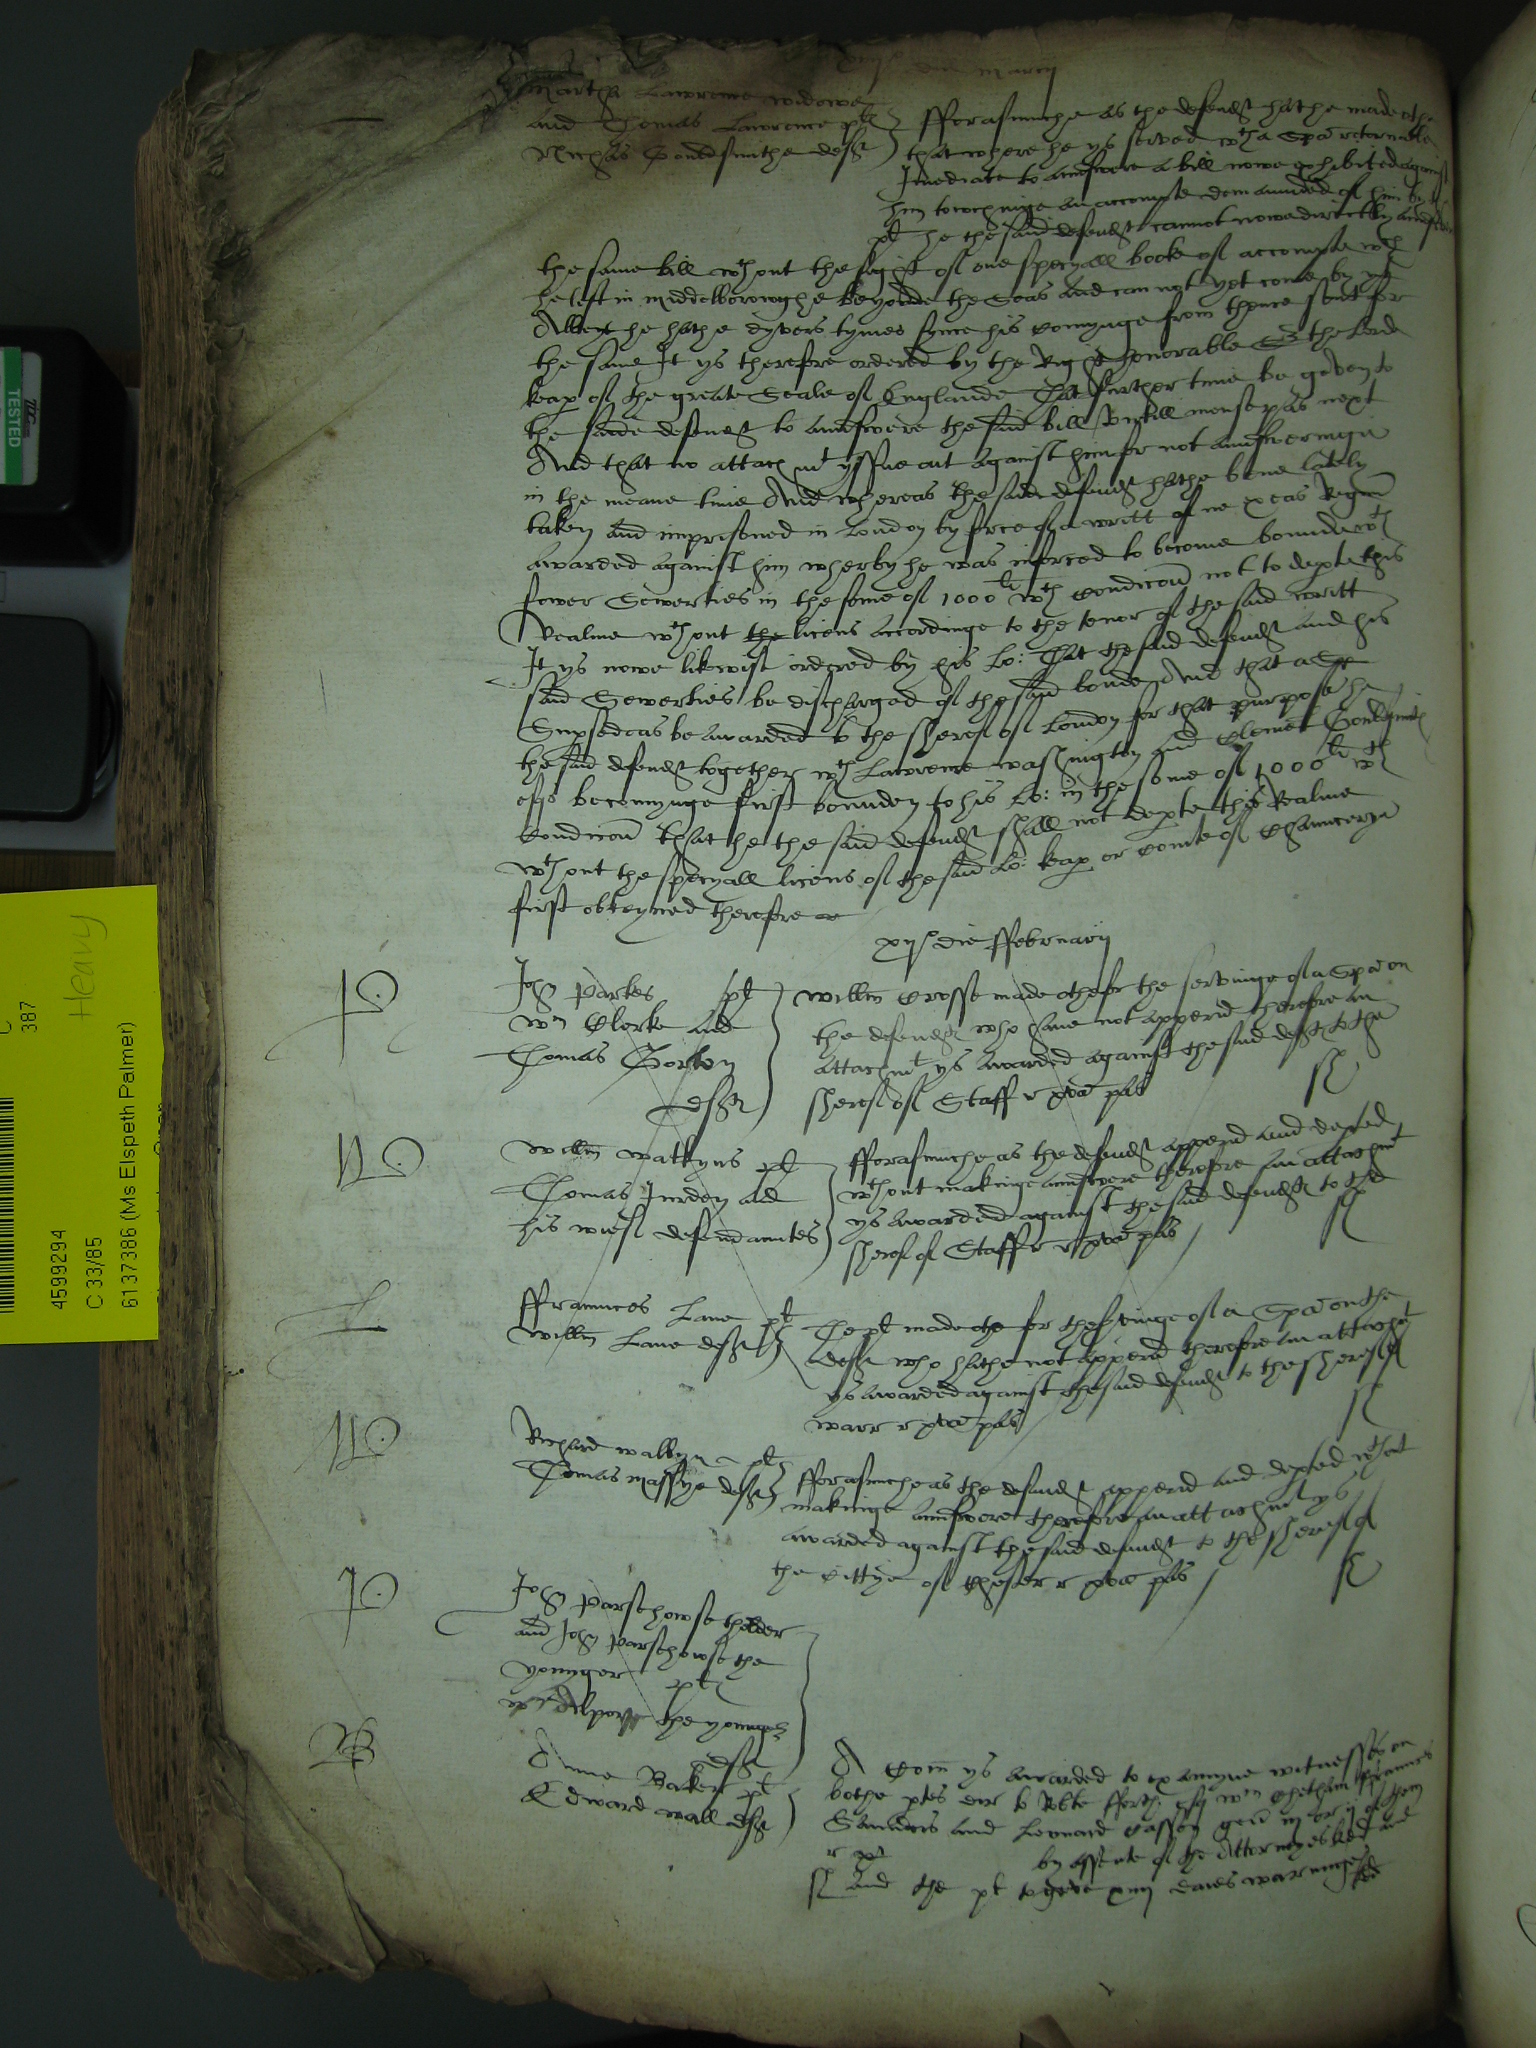 die marcij
Martha Lawrence widowe
and Thomas Lawrence plt
Nichas Gouldsmithe deft
fforasmuche as the defendt hathe made othe
that where he ys served wth a Spa retornable
Imediate to aunswere a bill nowe exhibited against
him towchinge an accompte demaunded of him by the
plt he the said defendt cannot nowe directly aunswere
the same bill wthout the sight of one specyall booke of accompte wch
he left in Middelboroughe beyonde the Seas and can not yet come by yt
Albeyt he hathe dyvers tymes synce his comynge from thence sent for
the same It ys therefore ordered by the Right honorable Sr the Lord
keap of the greate Seale of Englande That further time be geven to
the saide defendt to aunswere the said bill untill mense pas next
And that no attachmt yssue out against him for not aunsweringe
in the meane time And whereas the said defendt hathe bene lately
taken and imprisoned in London by force of a writt of ne exeas Regnu
awarded against him wherby he was inforced to become bounde wth
fower Sewerties in the some of 1000li wth condicou not to depte this
Realme wthout the licens accordinge to the tenor of the said writt
It ys nowe likewise ordered by his Lo: That the said defendt and his
said Sewerties be discharged of the said bonde And that a
Supsedeas be awarded to the sherefs of London for that purpose he
the said defendt together wth Lawrence Washington and Clement Gouldsmith
esqs becomynge first bounden to his Lo: in the some of 1000li wth
condicou that he the said defendt shall not depte this Realme
wthout the specyall licens of the said Lo: keap or courte of Chauncerye
first obteyned therefore
xijo die ffebruarij
John Parkes plt
Wm Clerke and
Thomas Gorten
defts
Willm Crosse made othe for the servinge of a Spa on
the defendts who have not apperid therefore an
attachmt ys awarded against the said defts to the
sheref of Staff r xva pas
Willm Watkyns plt
Thomas Jurden and
his wief defendauntes
fforasmuche as the defendts apperid and depted
wthout makinge aunswere therefore an attachmt
ys awarded against the said defendts to the
sheref of Staff r xva pas
ffraunces Lane plt
Willm Lane deft
The plt made othe for the svinge of a Spa on the
deft who hathe not apperid therefore an attachmt
ys awarded against the said defendt to the sheref of
warr r xva pas
Richard Walkyn plt
Thomas Massye deft
fforasmuche as the defendt apperid and depted wthout
makinge aunswere therefore an attachmt ys
awarded against the said defendt to the sherefs of
the cittye of chester r xva pas
John Parsehowse thelder
and John Parsehowse the
younger plts
the younger
deft
Anne Baker plt
Edward Wall deft
A Com ys awarded to examyne witnesses on
bothe ptes dir to Robte fforth esq Wm Chetham ffraunces
Saunders and Leonard Casson gen iij or ij of them
r
by assente of the Attorneyes
and the plt to geve xiiij daies warninge
4599294
C 33/85
6137386 (Ms Elspeth Palmer)
C
387
Heavy
TESTED